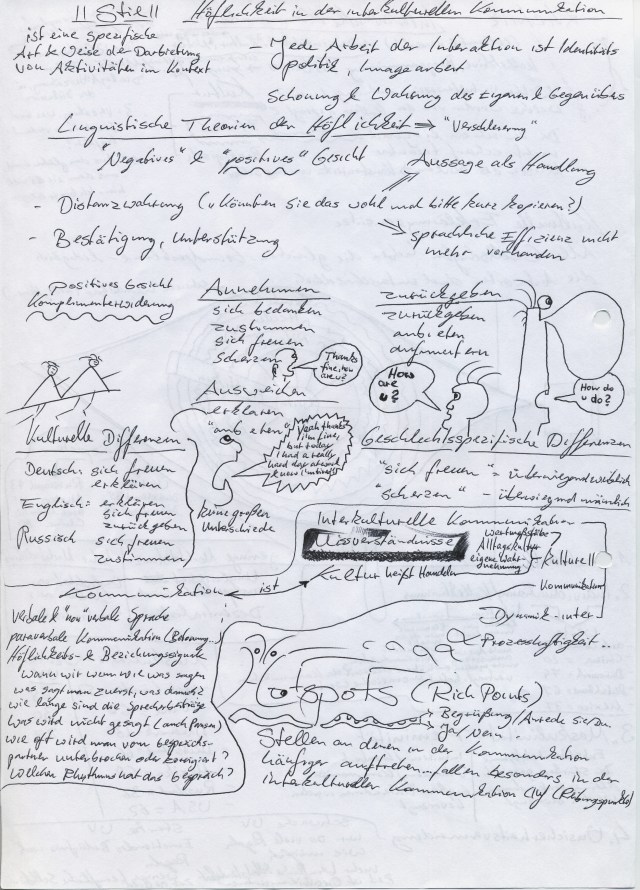 !! Stil !!
Höflichkeit in der interkulturellen Kommunikation
ist eine spezifische
Art & Weise der Darbietung
von Aktivitäten im Kontext
- Jede Arbeit der Interaktion ist Identitäts
politik, Imagearbeit
Schonung & Wahrung des Eigenen & Gegenübers
Linguistische Theorien der Höflichkeit ⇒ "Verschleierung"
"Negatives" & "positives" Gesicht
Aussage als Handlung
- Distanzwahrung (Könnten Sie das wohl mal bitte kurz kopieren?)
- Bestätigung, Unterstützung
sprachliche Effizienz nicht
mehr vorhanden
positives Gesicht
Komplimenterwiderung
Annehmen
sich bedanken
zustimmen
sich freuen
scherzen
Thanks
fine, how
are u?
zurückgeben
zurückgeben
anbieten
How
are
u?
How do
u do?
Ausweichen
erklären
"anbieten"
Yeah thanks
i'm fine,
but today
I had a really
hard day at work
Kulturelle Differenzen
Deutsch: sich freuen
erklären
Englisch: erklären
sich freuen
zurückgeben
Russisch sich freuen
zustimmen
keine großen
Unterschiede
Geschlechtsspezifische Differenzen
"sich freuen" = überwiegend weiblich
"scherzen" - überwiegend männlich
Interkulturelle Kommunikation
Missverständnisse
Wertungsstäbe
Alltagskultur
eigene Wahr-
nehmung
kulturell
Kultur heißt Handeln
Kommunikation
Kommunikation ist
Dynamik-inter
Prozesshaftigkeit..
Verbale & "non"verbale Sprache
paraverbale Kommunikation (Betonung..)
Höflichkeits- & Beziehungssignale
Wann wir wem wie was sagen
was sagt man zuerst, was danach?
wie lange sind die Sprecherbeiträge
Was wird nicht gesagt (auch Pausen)
wie oft wird man vom Gesprächs-
partner unterbrochen oder korrigiert?
Welchen Rhythmus hat das Gespräch?
Hotspots (Rich Points)
Begrüßung/Anrede Sie/Du
Ja/Nein
Stellen an denen in der Kommunikation
häufiger auftreten... fallen besonders in der
interkultureller Kommunikation (Reibungspunkte)